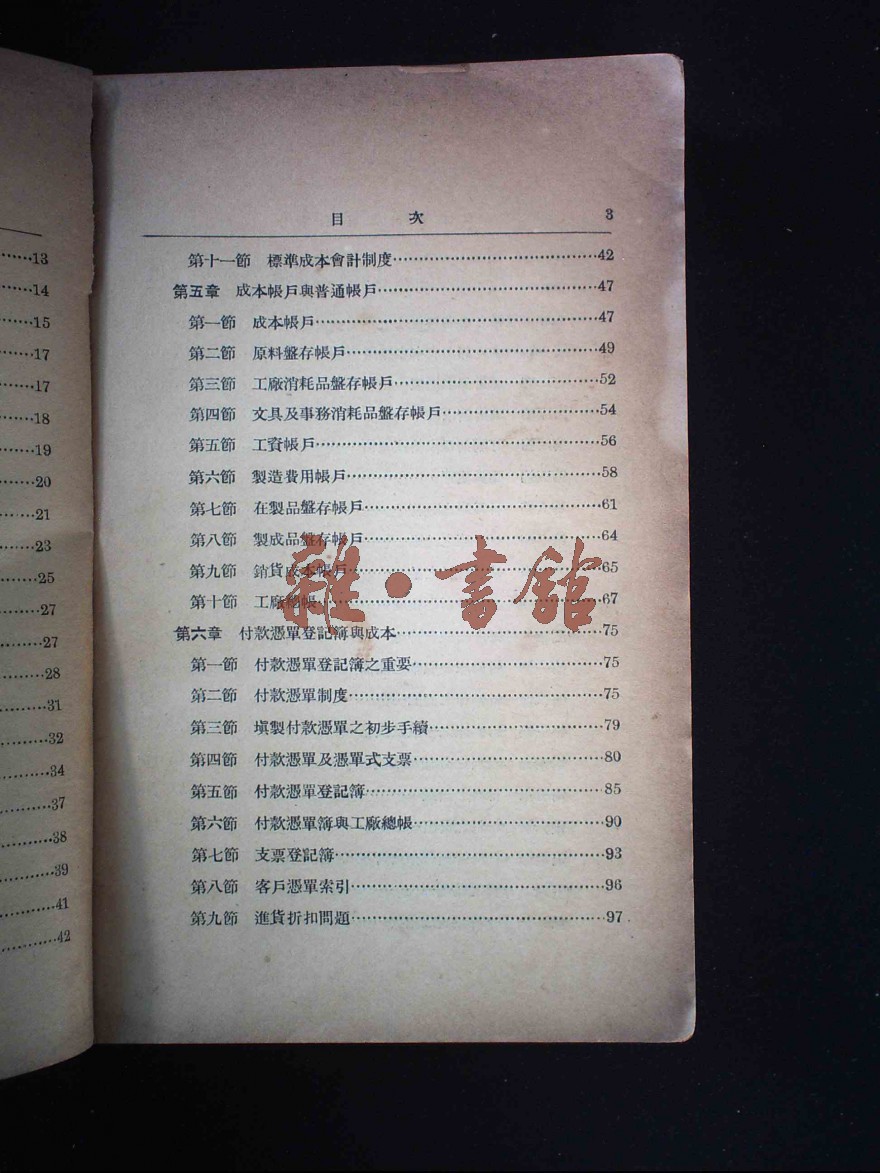 13
14
15
17
17
18
19
20
21
23
25
27
27
28
31
32
34
37
38
39
41
42
目 次 3
第十一節 標準成本會計制度…………42
第五章 成本帳戶與普通帳戶…………47
第一節 成本帳戶…………47
第二節 原料盤存帳戶…………49
第三節 工廠消耗品盤存帳戶…………52
第四節 文具及事務消耗品盤存帳戶…………54
第五節 工資帳戶…………56
第六節 製造費用帳戶…………58
第七節 在製品盤存帳戶…………61
第八節 製成品盤存帳戶…………64
第九節 銷貨成本帳戶…………65
第十節 工廠總帳…………67
第六章 付款憑單登記簿與成本…………75
第一節 付款憑單登記簿之重要…………75
第二節 付款憑單制度…………75
第三節 填製付款憑單之初步手續…………79
第四節 付款憑單及憑單式支票…………80
第五節 付款憑單登記簿…………85
第六節 付款憑單簿與工廠總帳…………90
第七節 支票登記簿…………93
第八節 客戶憑單索引…………96
第九節 進貨折扣問題…………97
雜·書館